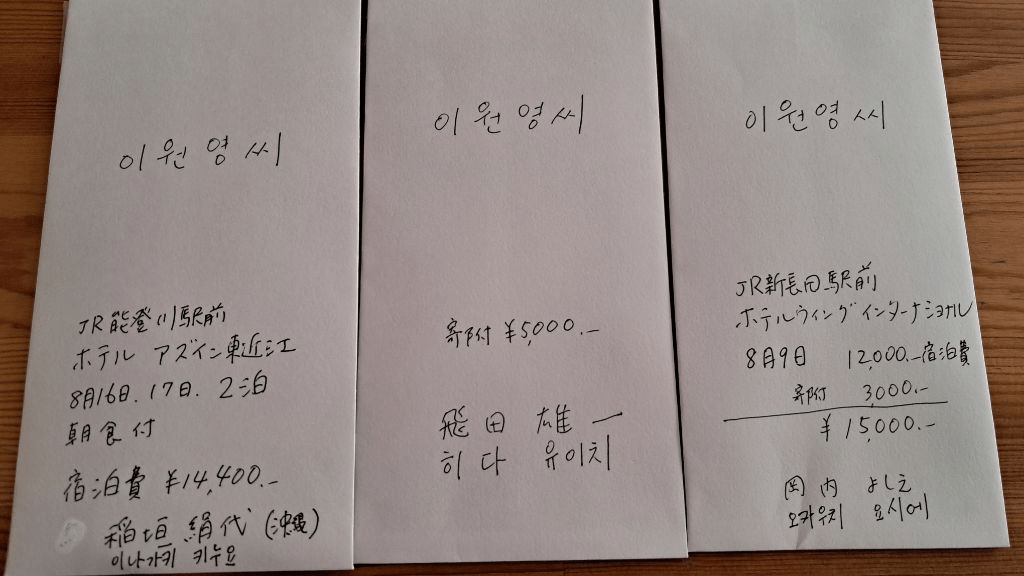 이원영씨
JR能登川駅前
ホテル アズイン東近江
8月16日.17日. 2泊
朝食付
宿泊費 ¥14,400.-
稲垣 絹代 (沖縄)
이나가키 키누요
이원영씨
寄附 ¥5,000.-
飛田 雄一
히다 유이치
이원영씨
JR新長田駅前
ホテルウィングインターナショナル
8月9日 12,000.-宿泊費
寄附 3,000.-
¥15,000.-
岡内 よしえ
오카우치 요시에